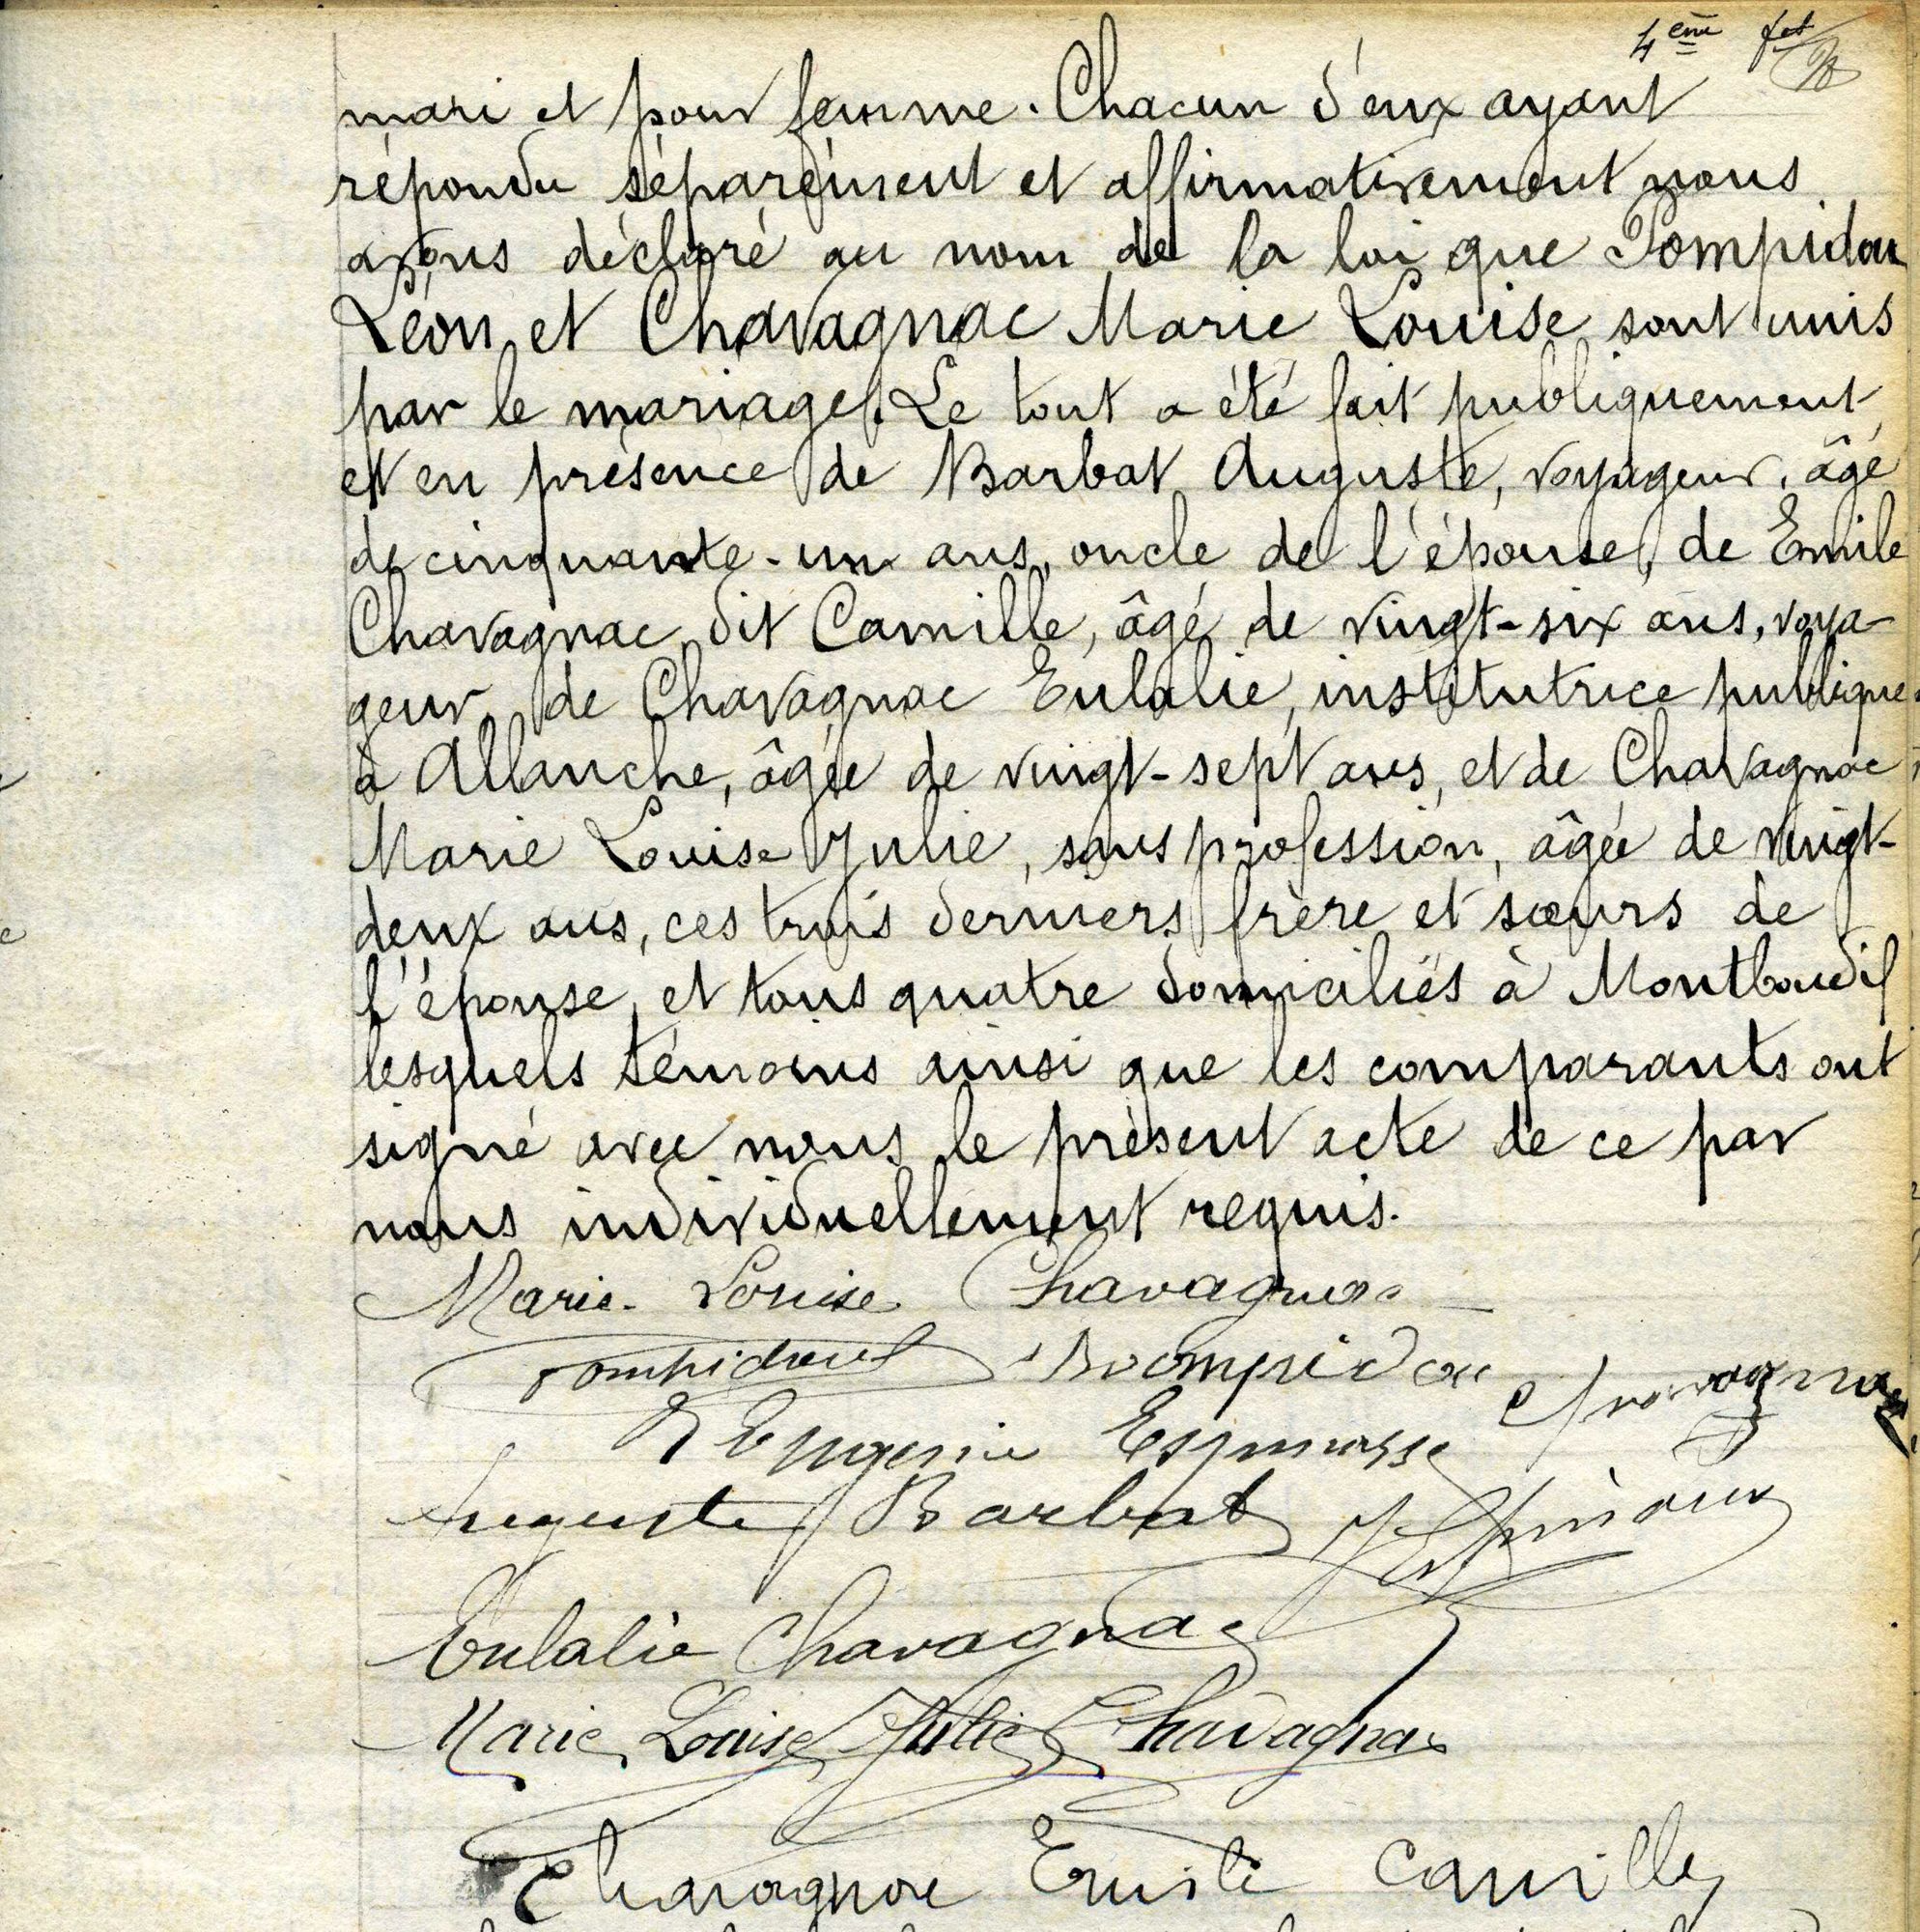 4ème fet
mari et pour femme. Chacun d'eux ayant
répondu séparément et affirmativement nous
avons déclaré au nom de la loi que Pompidou
Léon et Chavagnac Marie Louise sont unis
par le mariage. Le tout a été fait publiquement
et en présence de Barbat Auguste, voyageur, âgé
de cinquante-un ans, oncle de l'épouse, de Emile
Chavagnac dit Camille, âgé de vingt-six ans, voya-
geur, de Chavagnac Eulalie, institutrice publique
à Allanche, âgée de vingt-sept ans, et de Chavagnac
Marie Louise Julie, sans profession, âgée de vingt-
deux ans, ces trois derniers frère et sœurs de
l'épouse, et tous quatre domiciliés à Montboudif
lesquels témoins ainsi que les comparants ont
signé avec nous le présent acte de ce par
nous individuellement requis.
Marie-Louise Chavagnac
Pompidou Pompidou Chavagnac
Eugenie Espinasse
Auguste Barbat
Eulalie Chavagnac
Marie Louise Julie Chavagnac
Chavagnac Emile Camille